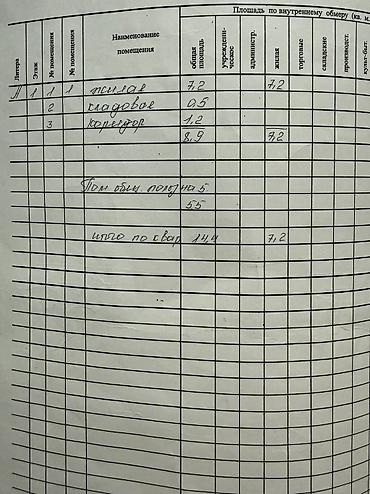 Площадь по внутреннему обмеру (кв. м.
Литера Этаж № помещения № помещения Наименование помещения общая площадь учрежденческое администр. жилая торговые складские производст. культ-быт.
А 1 1 1 жилая 7,2 7,2
2 кладовое 0,5
3 коридор 1,2
8,9 7,2
Пом общ. пользна 5
55
итого по квар 14,4 7,2